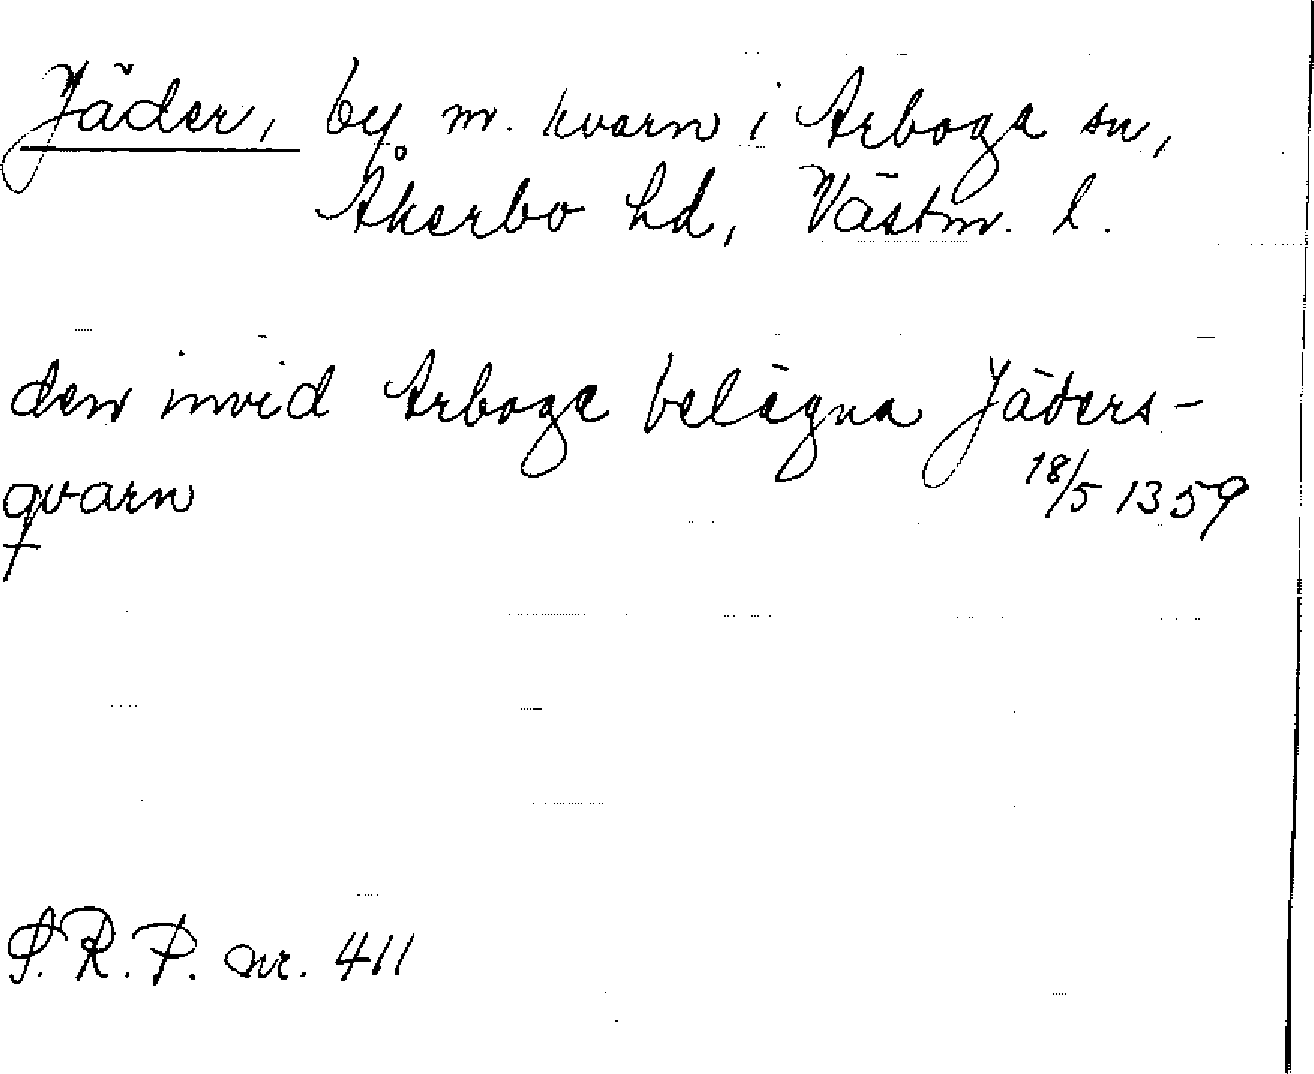 Jäder, by m. kvarn i Arboga sn,
Åkerbo hd, Västm. l.
den invid Arboga belägna Jäders-
qvarn 18/5 1359
S.R.P. nr. 411